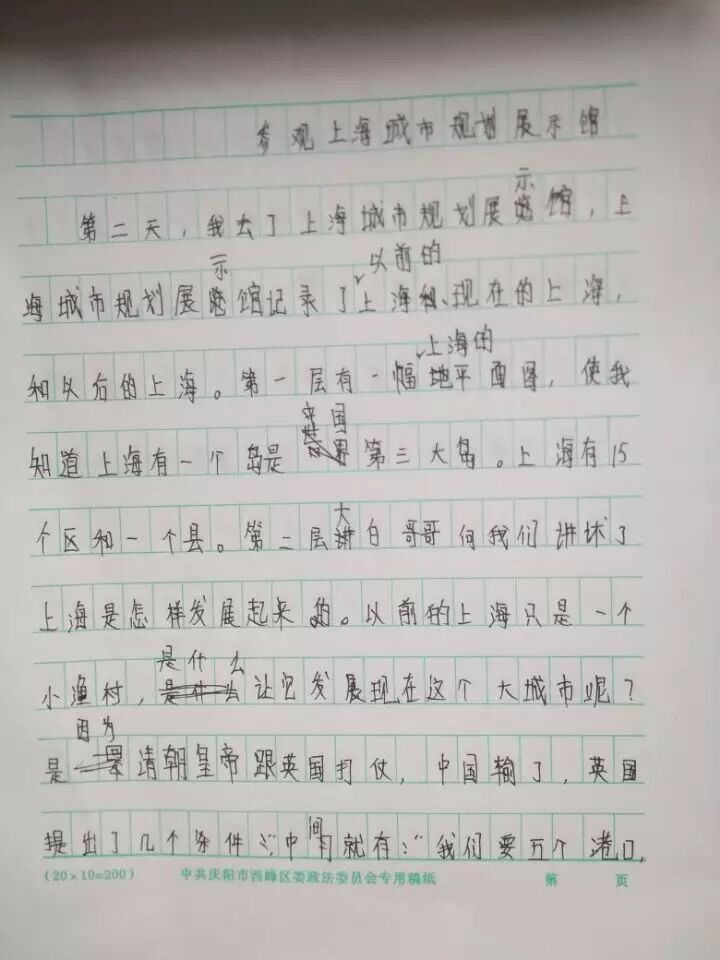 参观上海城市规划展示馆
第二天，我去了上海城市规划展示馆，上
海城市规划展示馆记录了以前的上海和、现在的上海，
和以后的上海。第一层有一幅上海的地平面图，使我
知道上海有一个岛是中国第三大岛。上海有15
个区和一个县。第二层大白哥哥向我们讲述了
上海是怎样发展起来的。以前的上海只是一个
小渔村，是什么让它发展现在这个大城市呢？
是因为清朝皇帝跟英国打仗，中国输了，英国
提出了几个条件，中间就有：“我们要五个港口，
(20×10=200) 中共庆阳市西峰区委政法委员会专用稿纸 第 页